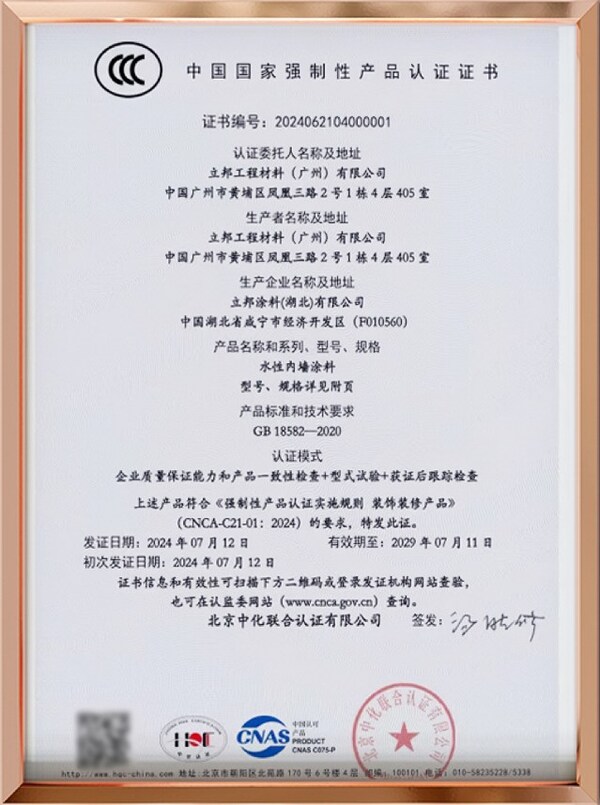 CCC
中国国家强制性产品认证证书
证书编号：2024062104000001
认证委托人名称及地址
立邦工程材料（广州）有限公司
中国广州市黄埔区凤凰三路2号1栋4层405室
生产者名称及地址
立邦工程材料（广州）有限公司
中国广州市黄埔区凤凰三路2号1栋4层405室
生产企业名称及地址
立邦涂料(湖北)有限公司
中国湖北省咸宁市经济开发区（F010560）
产品名称和系列、型号、规格
水性内墙涂料
型号、规格详见附页
产品标准和技术要求
GB 18582—2020
认证模式
企业质量保证能力和产品一致性检查+型式试验+获证后跟踪检查
上述产品符合《强制性产品认证实施规则 装饰装修产品》
（CNCA-C21-01：2024）的要求，特发此证。
发证日期：2024年07月12日 有效期至：2029年07月11日
初次发证日期：2024年07月12日
证书信息和有效性可扫描下方二维码或登录发证机构网站查验，
也可在认监委网站（www.cnca.gov.cn）查询。
北京中化联合认证有限公司 签发：
HQC
CNAS
中国认可
产品
PRODUCT
CNAS C075-P
北京中化联合认证有限公司
http://www.hqc-china.com 地址:北京市朝阳区北苑路170号6号楼4层 邮编：100101 电话：010-58235228/5338